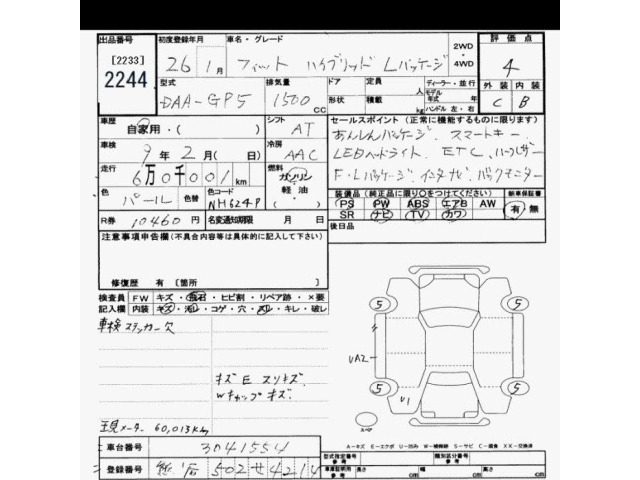 出品番号 初度登録年月 車名・グレード 2WD・4WD 評価点
[2233]
2244
26年 1月 フィット ハイブリッド Lパッケージ 4
型式 排気量 ドア 定員 人 ディーラー・並行
DAA-GP5 1500 CC 形状 積載 kg モデル年式 年 ハンドル 左・右
外装 内装
C B
車歴 自家用・( ) シフト AT
セールスポイント (正常に機能するものに限ります)
あんしんパッケージ、スマートキー、
LEDヘッドライト、ETC、ハーフレザー
F・Lパッケージ、インタナビ、バックモニター
車検 9年 2月(日) 冷房 AAC
走行 6万0千001km 燃料 ガソリン 軽油・( )
色 パール 色替 色コード NH624P
R券 10460円 名変通知期限 月 日
装備品(純正品に限り○をつけてください) 新車保証書
PS PW ABS エアB AW
SR ナビ TV カワ 有・無
後日品
注意事項申告欄(不具合内容等は具体的に記入して下さい)
修復歴 有 [箇所 ]
検査員 FW キズ・飛石・ヒビ割・リペア跡・×要
記入欄 内装 キズ・汚レ・コゲ・穴・スレ・キレ・破レ
車検ステッカー欠
キズE スリキズ
Wキャップキズ
現メーター 60,013km
5 5
UA2
U1
5 5
スペア
A-キズ E-エクボ U-凹み W-補修跡 S-サビ C-腐食 XX-交換済
車台番号 3041554
登録番号 502せ421
型式指定番号 参考 類別区分番号 参考
車両証明用 参考 長さ cm 幅 cm 高さ cm